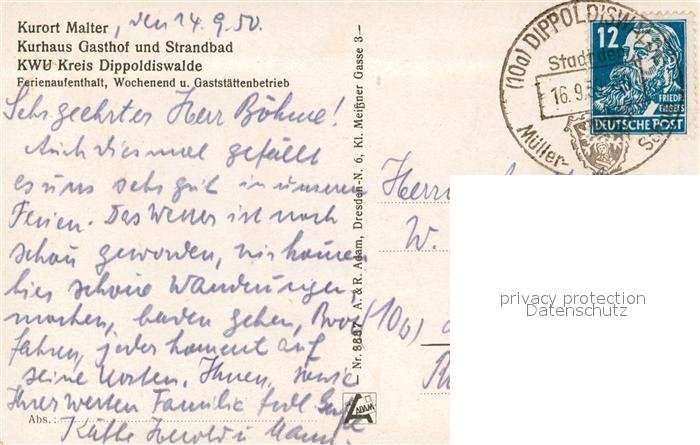 Kurort Malter, den 14.9.50.
Kurhaus Gasthof und Strandbad
KWU Kreis Dippoldiswalde
Ferienaufenthalt, Wochenend u. Gaststättenbetrieb
Sehr geehrter Herr Böhme!
Auch diesmal gefällt
es uns sehr gut in unseren
Ferien. Das Wetter ist noch
schön geworden, wir können
hier schöne Wanderungen
machen, baden gehen, Boot
fahren, jeder kommt auf
seine Kosten. Ihnen, sowie
Ihrer werten Familie frdl. Grüße
Käthe u. Mann.
Abs.:
Nr. 8887 A. & R. Adam, Dresden-N. 6, Kl. Meißner Gasse 3
ADAM
(10a) DIPPOLDISW
Stadt der
16.9.5
Müller-
12
FRIEDR. ENGELS
DEUTSCHE POST
Herrn
W.
(10b)
privacy protection
Datenschutz